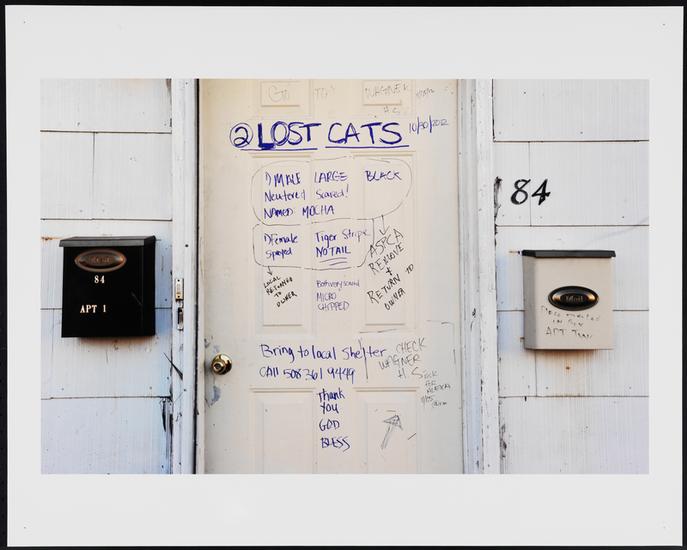 GO TO WAGNER
H.S
② LOST CATS 10/30/2012
1) MALE LARGE BLACK
Neutered Scared!
NAMED MOCHA
2) Female Tiger Stripe
Spayed NO TAIL
LOCAL
RETURNED
TO
OWNER
Both very scared
MICRO
CHIPPED
ASPCA
REMOVE
+
RETURN TO
OWNER
Bring to local Shelter
CAll 508 361 9449
Thank
You
GOD
BLESS
CHECK
WAGNER
H.S
84
Mail
84
APT 1
Mail
IN
APT